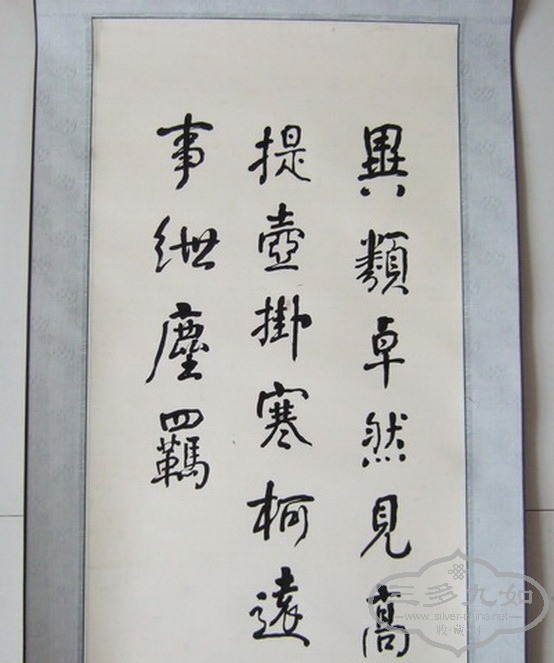 異類卓然見高
提壺掛寒柯遠
事紲塵羈
三多九如
www.silver-china.net
收藏